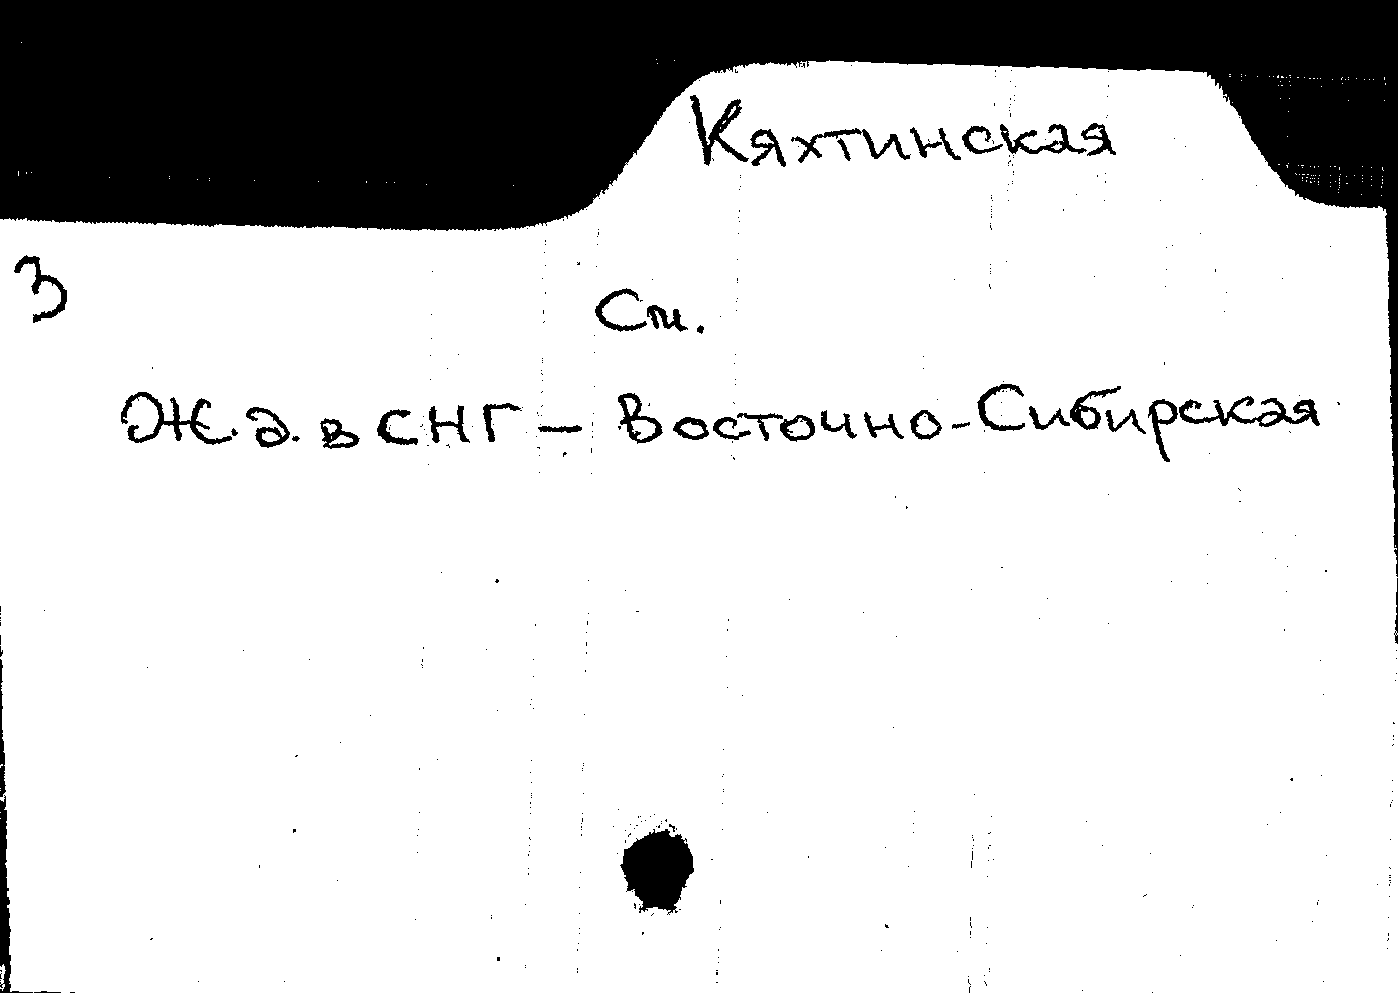 Кяхтинская
3
См.
Ж.д. в СНГ – Восточно-Сибирская